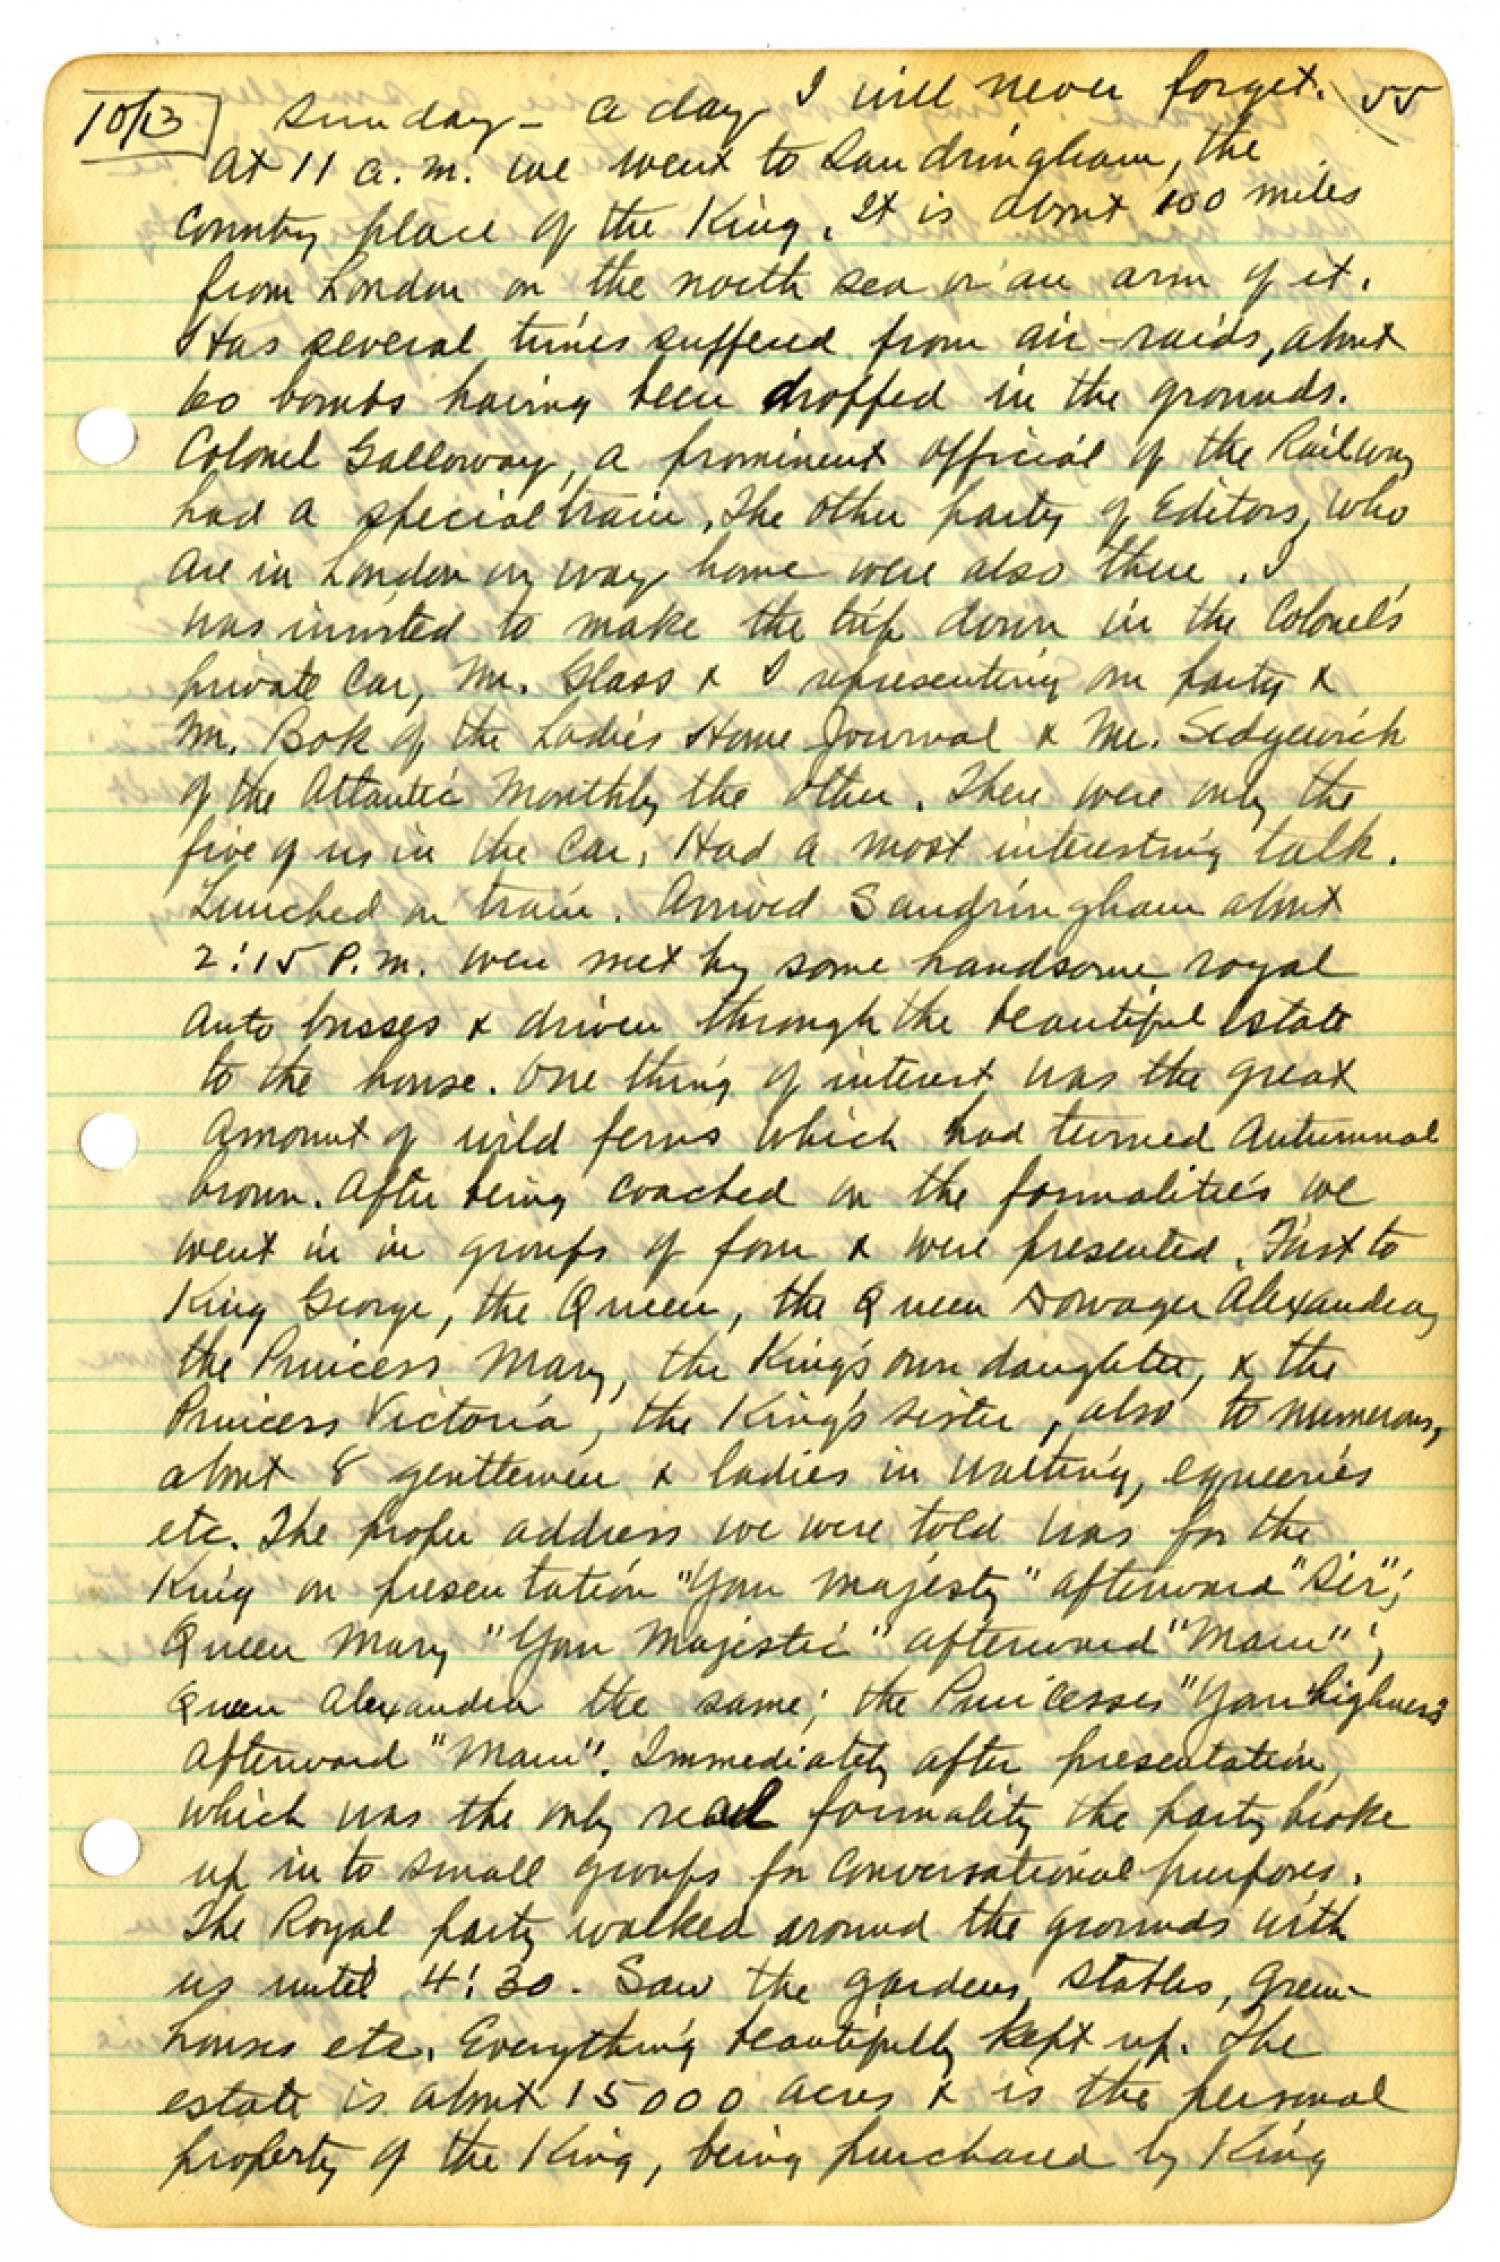 10/13 Sunday - a day I will never forget. 55
At 11 a.m. we went to Sandringham, the
Country place of the King. It is about 100 miles
from London on the north sea or an arm of it.
Has several times suffered from air-raids, about
60 bombs having been dropped in the grounds.
Colonel Galloway, a prominent official of the Railway
had a special train. The other party of Editors, who
are in London on way home were also there. I
was invited to make the trip down in the Colonel's
private Car, Mr. Glass & I representing our party &
Mr. Bok of the Ladies Home Journal & Mr. Sedgewick
of the Atlantic Monthly the other. There were only the
five of us in the Car. Had a most interesting talk.
Lunched on train. Arrived Sandringham about
2:15 P.m. were met by some handsome royal
Auto busses & driven through the beautiful estate
to the house. One thing of interest was the great
Amount of wild ferns which had turned Autumnal
brown. After being coached on the formalities we
went in in groups of four & were presented. First to
King George, the Queen, the Queen Dowager Alexandra,
the Princess Mary, the King's own daughter, & the
Princess Victoria, the King's sister, also to numerous,
about 8 gentlemen & ladies in waiting, equeeries
etc. The proper address we were told was for the
King on presentation "Your Majesty" afterward "Sir";
Queen Mary "Your Majestic" afterward "Mam";
Queen Alexandra the same; the Princesses "Your highness
afterward "Mam". Immediately after presentation,
which was the only real formality the party broke
up in to small groups for Conversational purposes.
The Royal party walked around the grounds with
us until 4:30. Saw the gardens, stables, green-
houses etc. Everything beautifully kept up. The
estate is about 15000 acres & is the personal
property of the King, being purchased by King